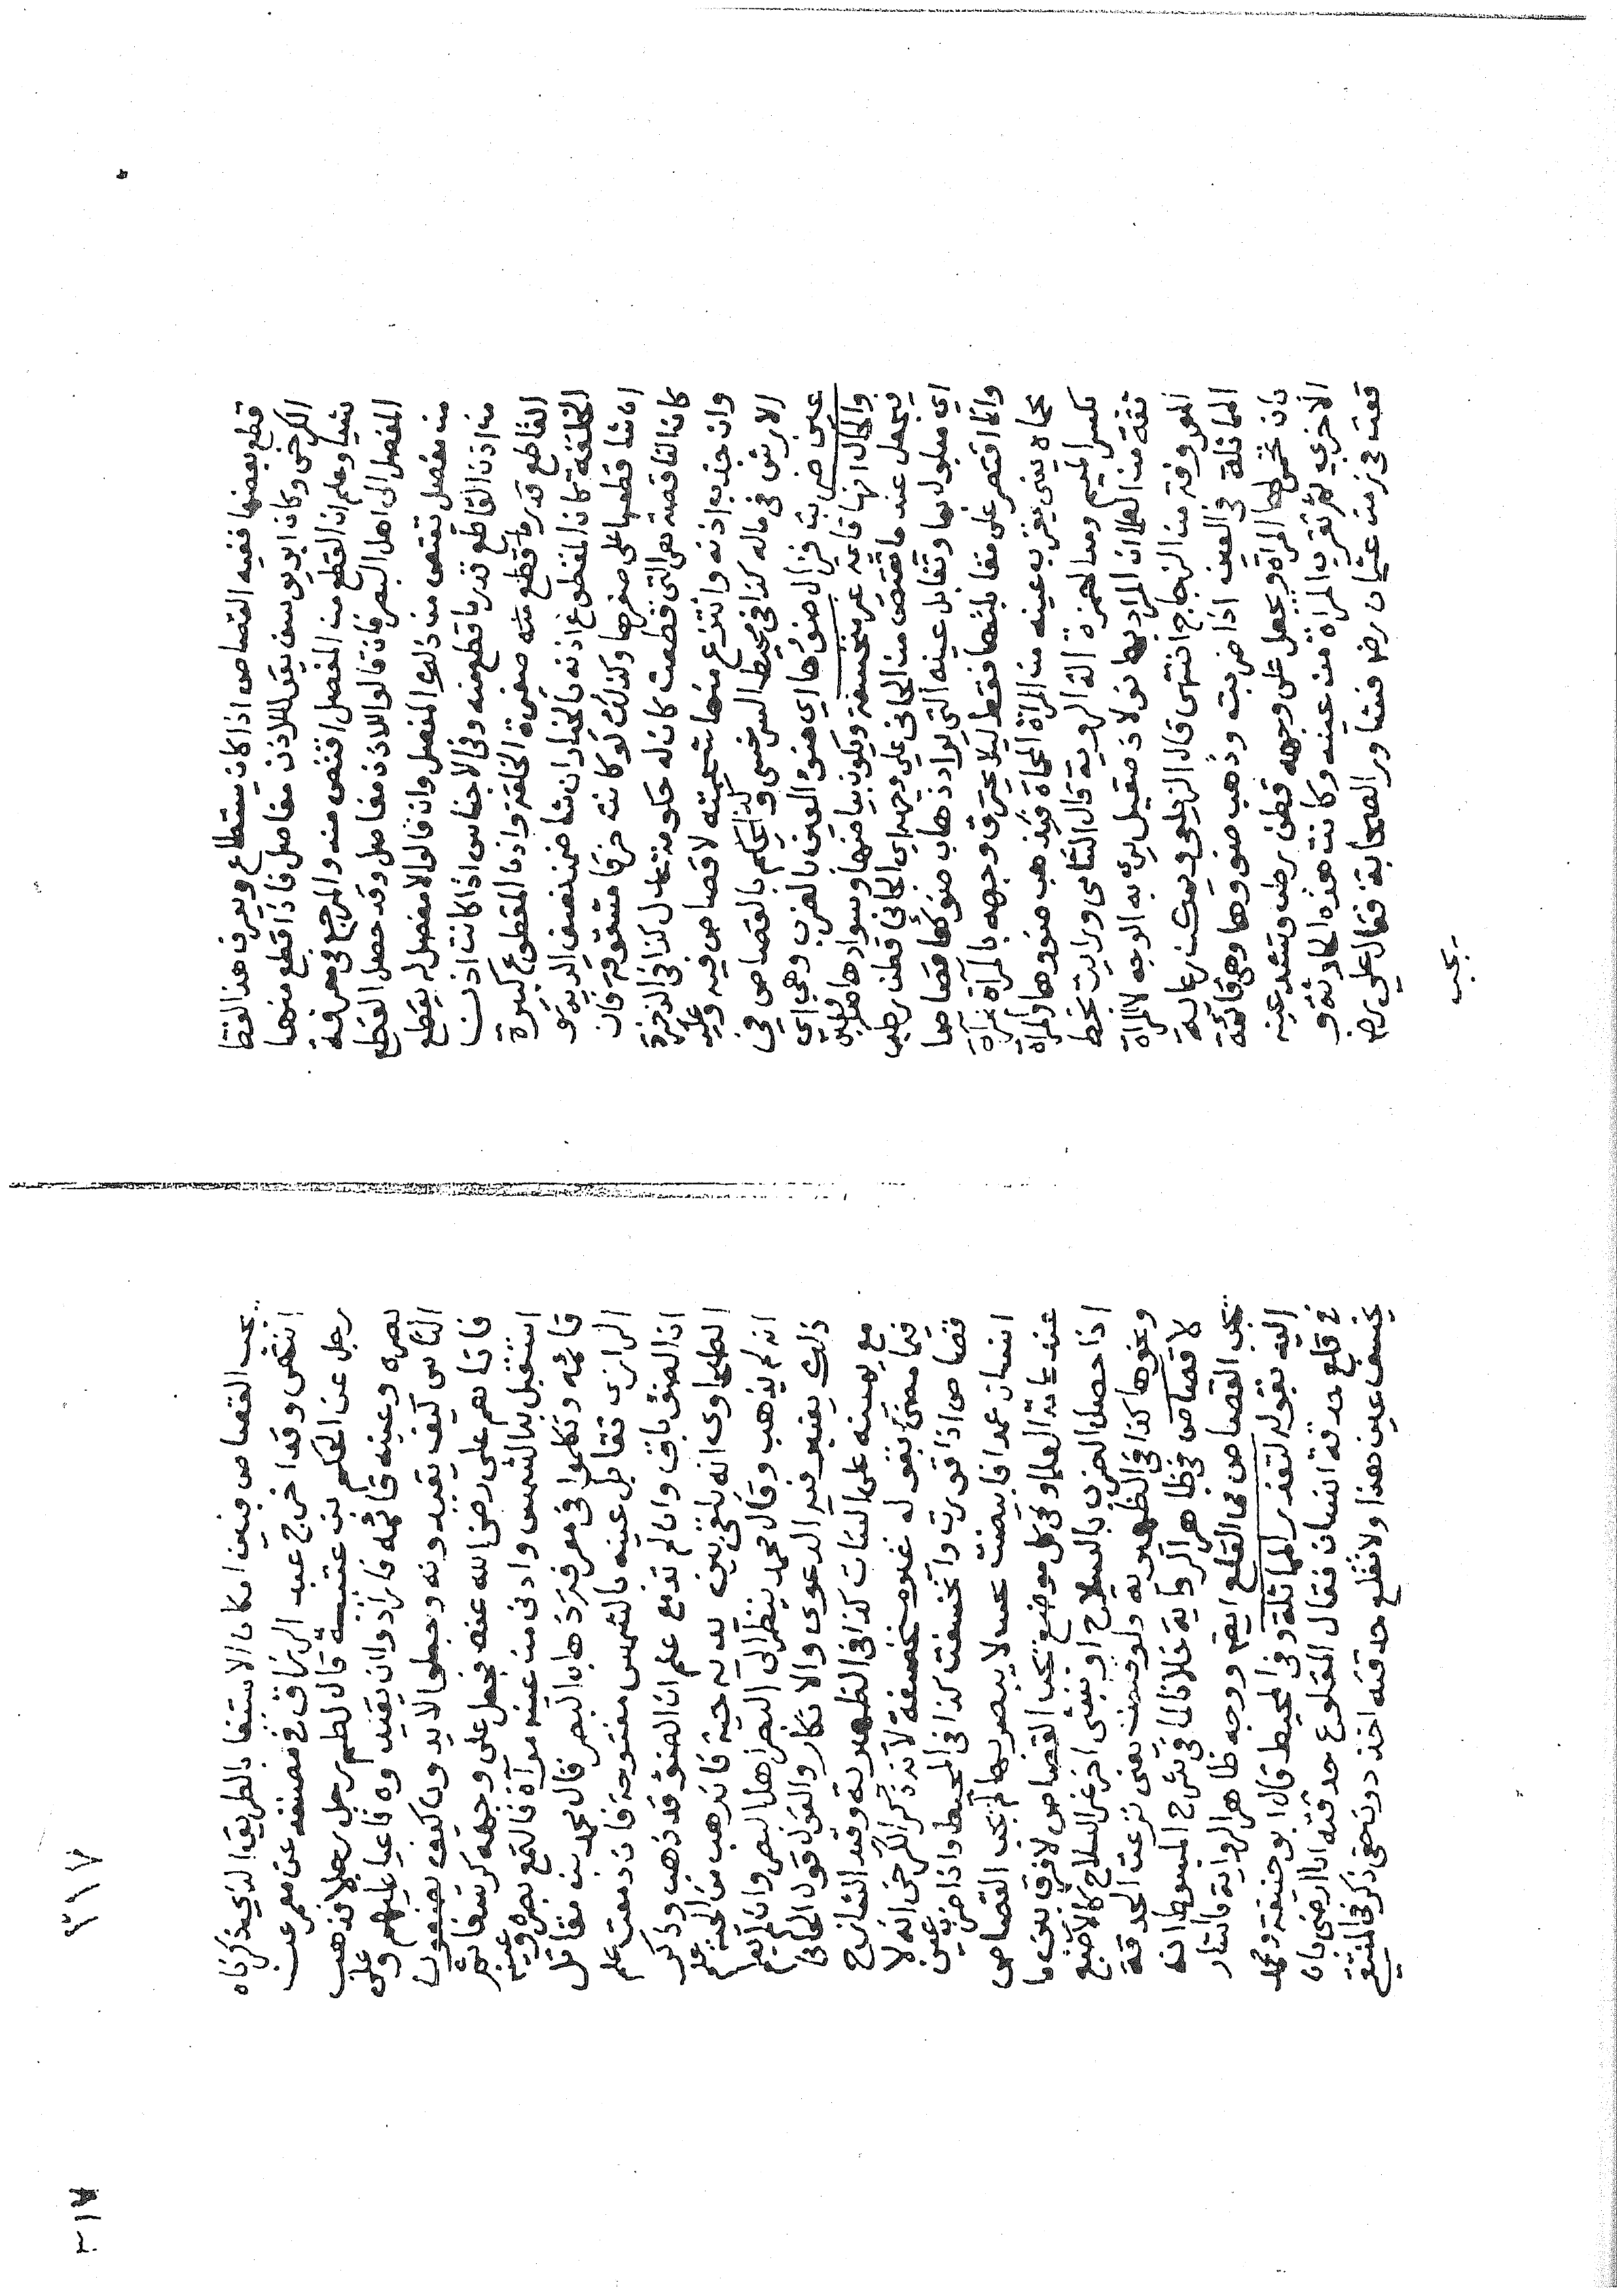 قطع بعضها ففيه القصاص اذا كان يستطاع ويعرف هذا لفظ
الكرخي وكان ابو يوسف يقول للاذن مفاصل فاذا قطع منها
شيا وعلم ان القطع من المفصل اقتص منه والمرجع في معرفة
المفصل الى اهل البصر فان قالوا للاذن مفاصل وقد حصل القطع
من مفصل تقتص من ذلك المفصل وان قالوا لا مفصل له يقطع
من اذن القاطع قدر ما قطع منه وفي الاجناس اذا كانت اذن
القاطع صغيرة الخلقة واذن المقطوع كبيرة
الخلقة كان المقطوع اذنه بالخيار ان شا ضمنه نصف الدية و
ان شا قطعها على صغرها وكذلك لو كانت خرقا مشقوقة فان
كانت الناقصة هي التي قطعت كان له حكومة عدل كذا في الذخيرة
وان جذب اذنه وانتزع منها شحمته لا قصاص فيه وعليه
الارش في ماله كذا في محيط السرخسي وكذا يحكم بالقصاص في
عين ضربت فزال ضوءها اي ضوء العين بالضرب وهي اي
والحال انها قايمة غير منخسفة ويكون بياضها وسوادها
فيجعل عند ما تقتص من الجاني على وجهه اي الجاني قطن رطب
اي مبلول بما وتقابل عينه التي يراد ذهاب ضوئها قصاصا
وانما اقتصر على مقابلتها فقط ليلا يحترق وجهه بالمرآة بمرآة
محماة يعني يقرب عينه من المرآة المحماة فيذهب ضوؤها والمرآة
بكسر الميم ومد الهمزة الة الروية قال الشامي ورايت بخط
ثقة من العلما ان المراد بها فولاذ صقيل يرى به الوجه لا المرآة
المعروفة من الزجاج انتهى قال الزيلعي ويمكن رعاية
المماثلة في العين اذا ضربت وذهب ضوؤها وهي قائمة
بان تحمى لها المرآة ويجعل على وجهه قطن رطب وتشد عينه
الاخرى ثم تقرب المرآة من عينه وكانت هذه الحادثة و
قعت في زمن عثمان رضه فشاور الصحابة فقال على رضه
يجب
٣١٧
يجب القصاص فبين امكان الاستيفا بالطريق الذي ذكرناه
انتهى وقد اخرج عبد الرزاق في مصنفه عن معمر عن
رجل عن الحكم بن عتيبة قال لطم رجل رجلا فذهب
بصره وعينه قائمة فارادوا ان يقيدوه فاعيا عليهم وعلى
الناس كيف يقيدونه وجعلوا لا يدرون كيف يصنعون
فاتاهم علي رضي الله عنه فجعل على وجهه كرسفا ثم
استقبل به الشمس وادنى من عينه مرآة فالتمع بصره وعينه
قائمة وتكلموا في معرفة ذهاب البصر قال محمد بن مقاتل
الرازي تقابل عينه بالشمس مفتوحة فان دمعت علم
ان الضوء باق وان لم تدمع علم ان الضوء قد ذهب وذكر
الطحاوي انه تلقى بين يديه حية فان هرب من الحية علم
انه لم يذهب وقال محمد ينظر الى البصر اهل البصر وان لم يعلم
ذلك يعتبر فيه الدعوى والانكار والقول قول الجاني
مع يمينه على البتات كذا في الظهيرية وقيد الشارح
فيما مضى بقوله غير منخسفة لانه ذكر الكرخي انه لا
قصاص اذا قورت وانخسفت كذا في المحيط واذا ضرب عين
انسان عمدا فابيضت بحيث لا يبصر بها لم يجب القصاص
عند عامة العلما وفي كل موضع يجب القصاص لا فرق بين ما
اذا حصل الضرب بالسلاح او بشئ اخر غير السلاح كالاصبع
ونحوها كذا في الظهيرية ولو قلعت يعني نزعت الحدقة
لا قصاص في ظاهر الرواية خلافا لما في شرح المبسوط انه
يجب القصاص في القلع ايضا ووجه ظاهر الرواية ما اشار
اليه بقوله لتعذر المماثلة وفي المحيط قال ابو حنيفة ومحمد
في قلع حدقة انسان فقال المقلوع حدقته انا ارضى بان
يخسف عين هذا ولا تقلع حدقته اخذ دون حقي ذكر في المنتقى
٣١٧